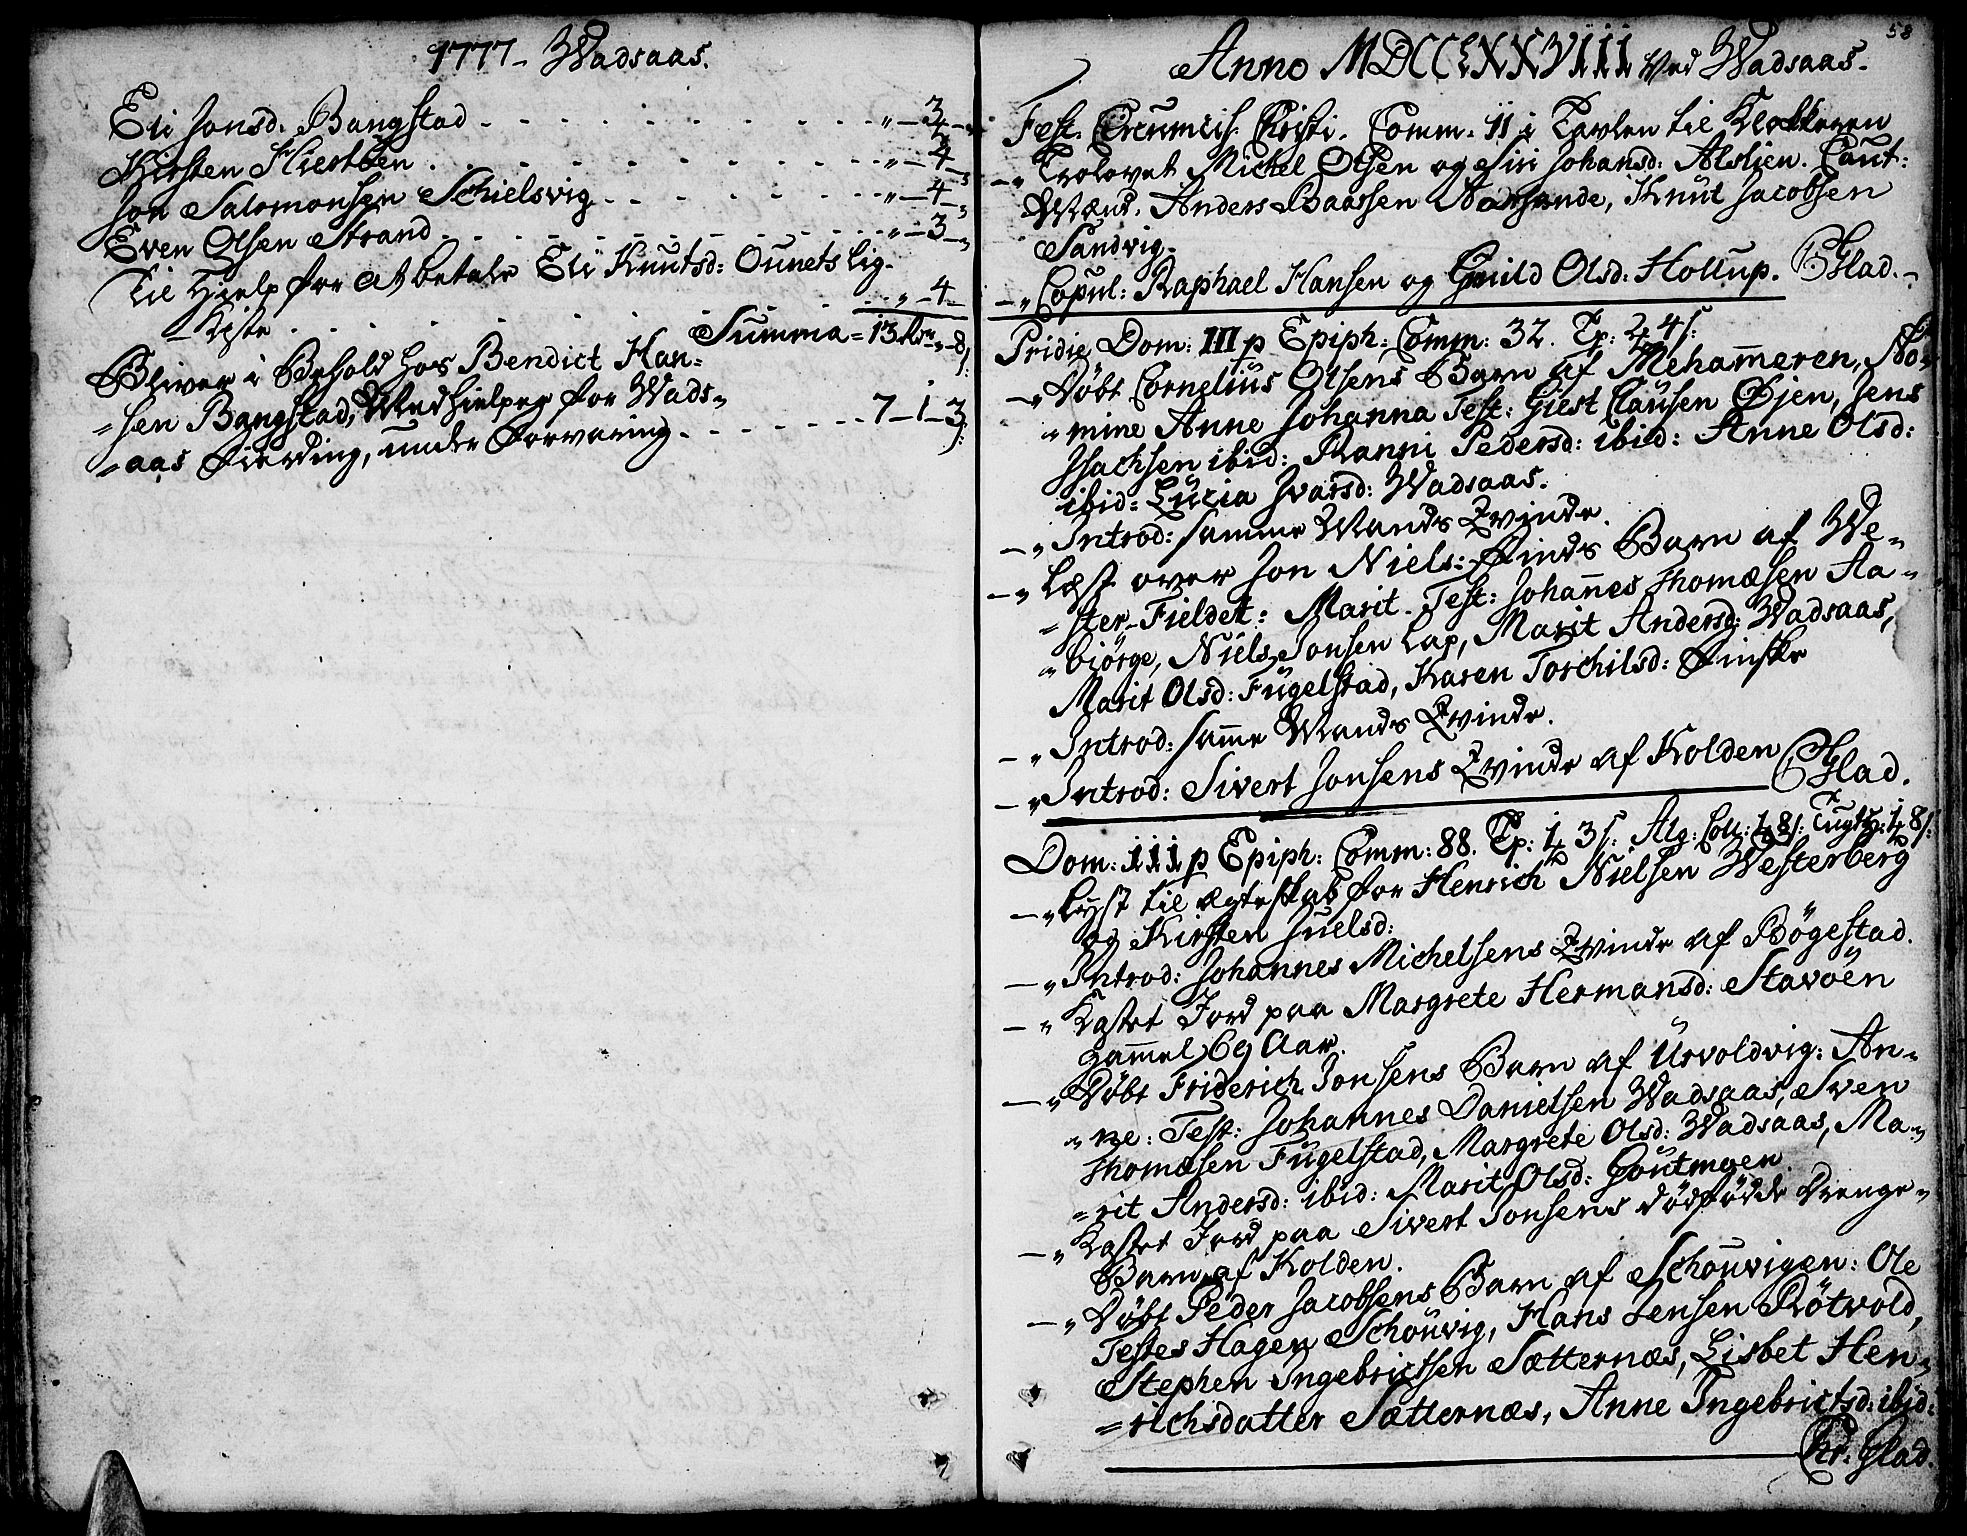 1777 - Wadsaas.
Eli Jonsd: Bangstad - - - - „ - 3 -„
Kirsten Hiertøen - - - - „ - 4 -„
Jon Salomonsen Schielsvig - - - - „ - 4 -„
Even Olsen Strand - - - - „ - 3 -„
Til Hjelp for at betale Eli Knutsd: Ounets Lig-
- Kiste - - - - „ - 4 -
Summa = 13 „ - 8ß
Bliver i Behold hos Bendict Han=
=sen Bangstad, Medhielper for Wads=
=aas Fierding, under Forvaring - - - - 7 - 1 - 3ß:
58
Anno MDCCLXXVIII Ved Wadsaas.
Fest. Circumcis. Christi. Comm. 11 i Tavlen til Klokkeren
-„ Trolovet Michel Olsen og Siri Johansd: Alslien. Caut:
Mænd. Anders Baassen, Knut Jacobsen
Sandvig.
-„ Copul: Raphael Hansen og Guild Olsd: Hollup. Glad.
Pridie Dom: III p Epiph: Comm: 32. Tp: 2 4ß:
-„ Døbt Cornelius Olsens Barn af Meham̄eren, No=
=mine Anne Johanna Test: Giest Clausen Øjen, Jens
Isachsen ibid: Ranni Pedersd: ibid: Anne Olsd:
ibid: Lucia Ivarsd: Wadsaas.
-„ Introd: samme Mands Qvinde.
-„ Læst over Jon Niels: Finds Barn af We=
=ster-Fieldet: Marit. Test: Johan̄es Thomæsen Aa=
=biörge, Niels Jonsen Lap, Marit Andersd: Wadsaas,
Marit Olsd: Fugelstad, Karen Torchilsd: Finske
-„ Introd: sam̄e Mands Qvinde.
-„ Introd: Sivert Jonsens Qvinde af Kolden Glad.
Dom: III p Epiph: Comm: 88. Tp: 1 3ß. Alg: Coll: 1 8ß: Tugth: 1 8ß:
-„ Lyst til Ægteskab for Henrich Nielsen Westerberg
og Kirsten Juelsd:
-„ Introd: Johannes Michelsens Qvinde af Bögestad.
-„ Kastet Jord paa Margrete Hermansd: Stavöen
gam̄el 69 Aar.
-„ Døbt Friderich Jonsens Barn af Urvoldvig: An=
=ne: Test: Johannes Danielsen Wadsaas, Sven
Thomæsen Fugelstad, Margrete Olsd: Wadsaas, Ma=
=rit Andersd: ibid: Marit Olsd: Goutmoen.
-„ Kastet Jord paa Sivert Jonsens dødfødde Drenge=
Barn af Kolden.
-„ Døbt Peder Jacobsens Barn af Schouvigen: Ole
Testes Hagen Schouvig, Hans Jensen Rötvold,
Stephen Ingebrictsen Sætternæs, Lisbet Hen=
=richsdatter Sætternæs, Anne Ingebrictsd: ibid:
Chr: Glad.